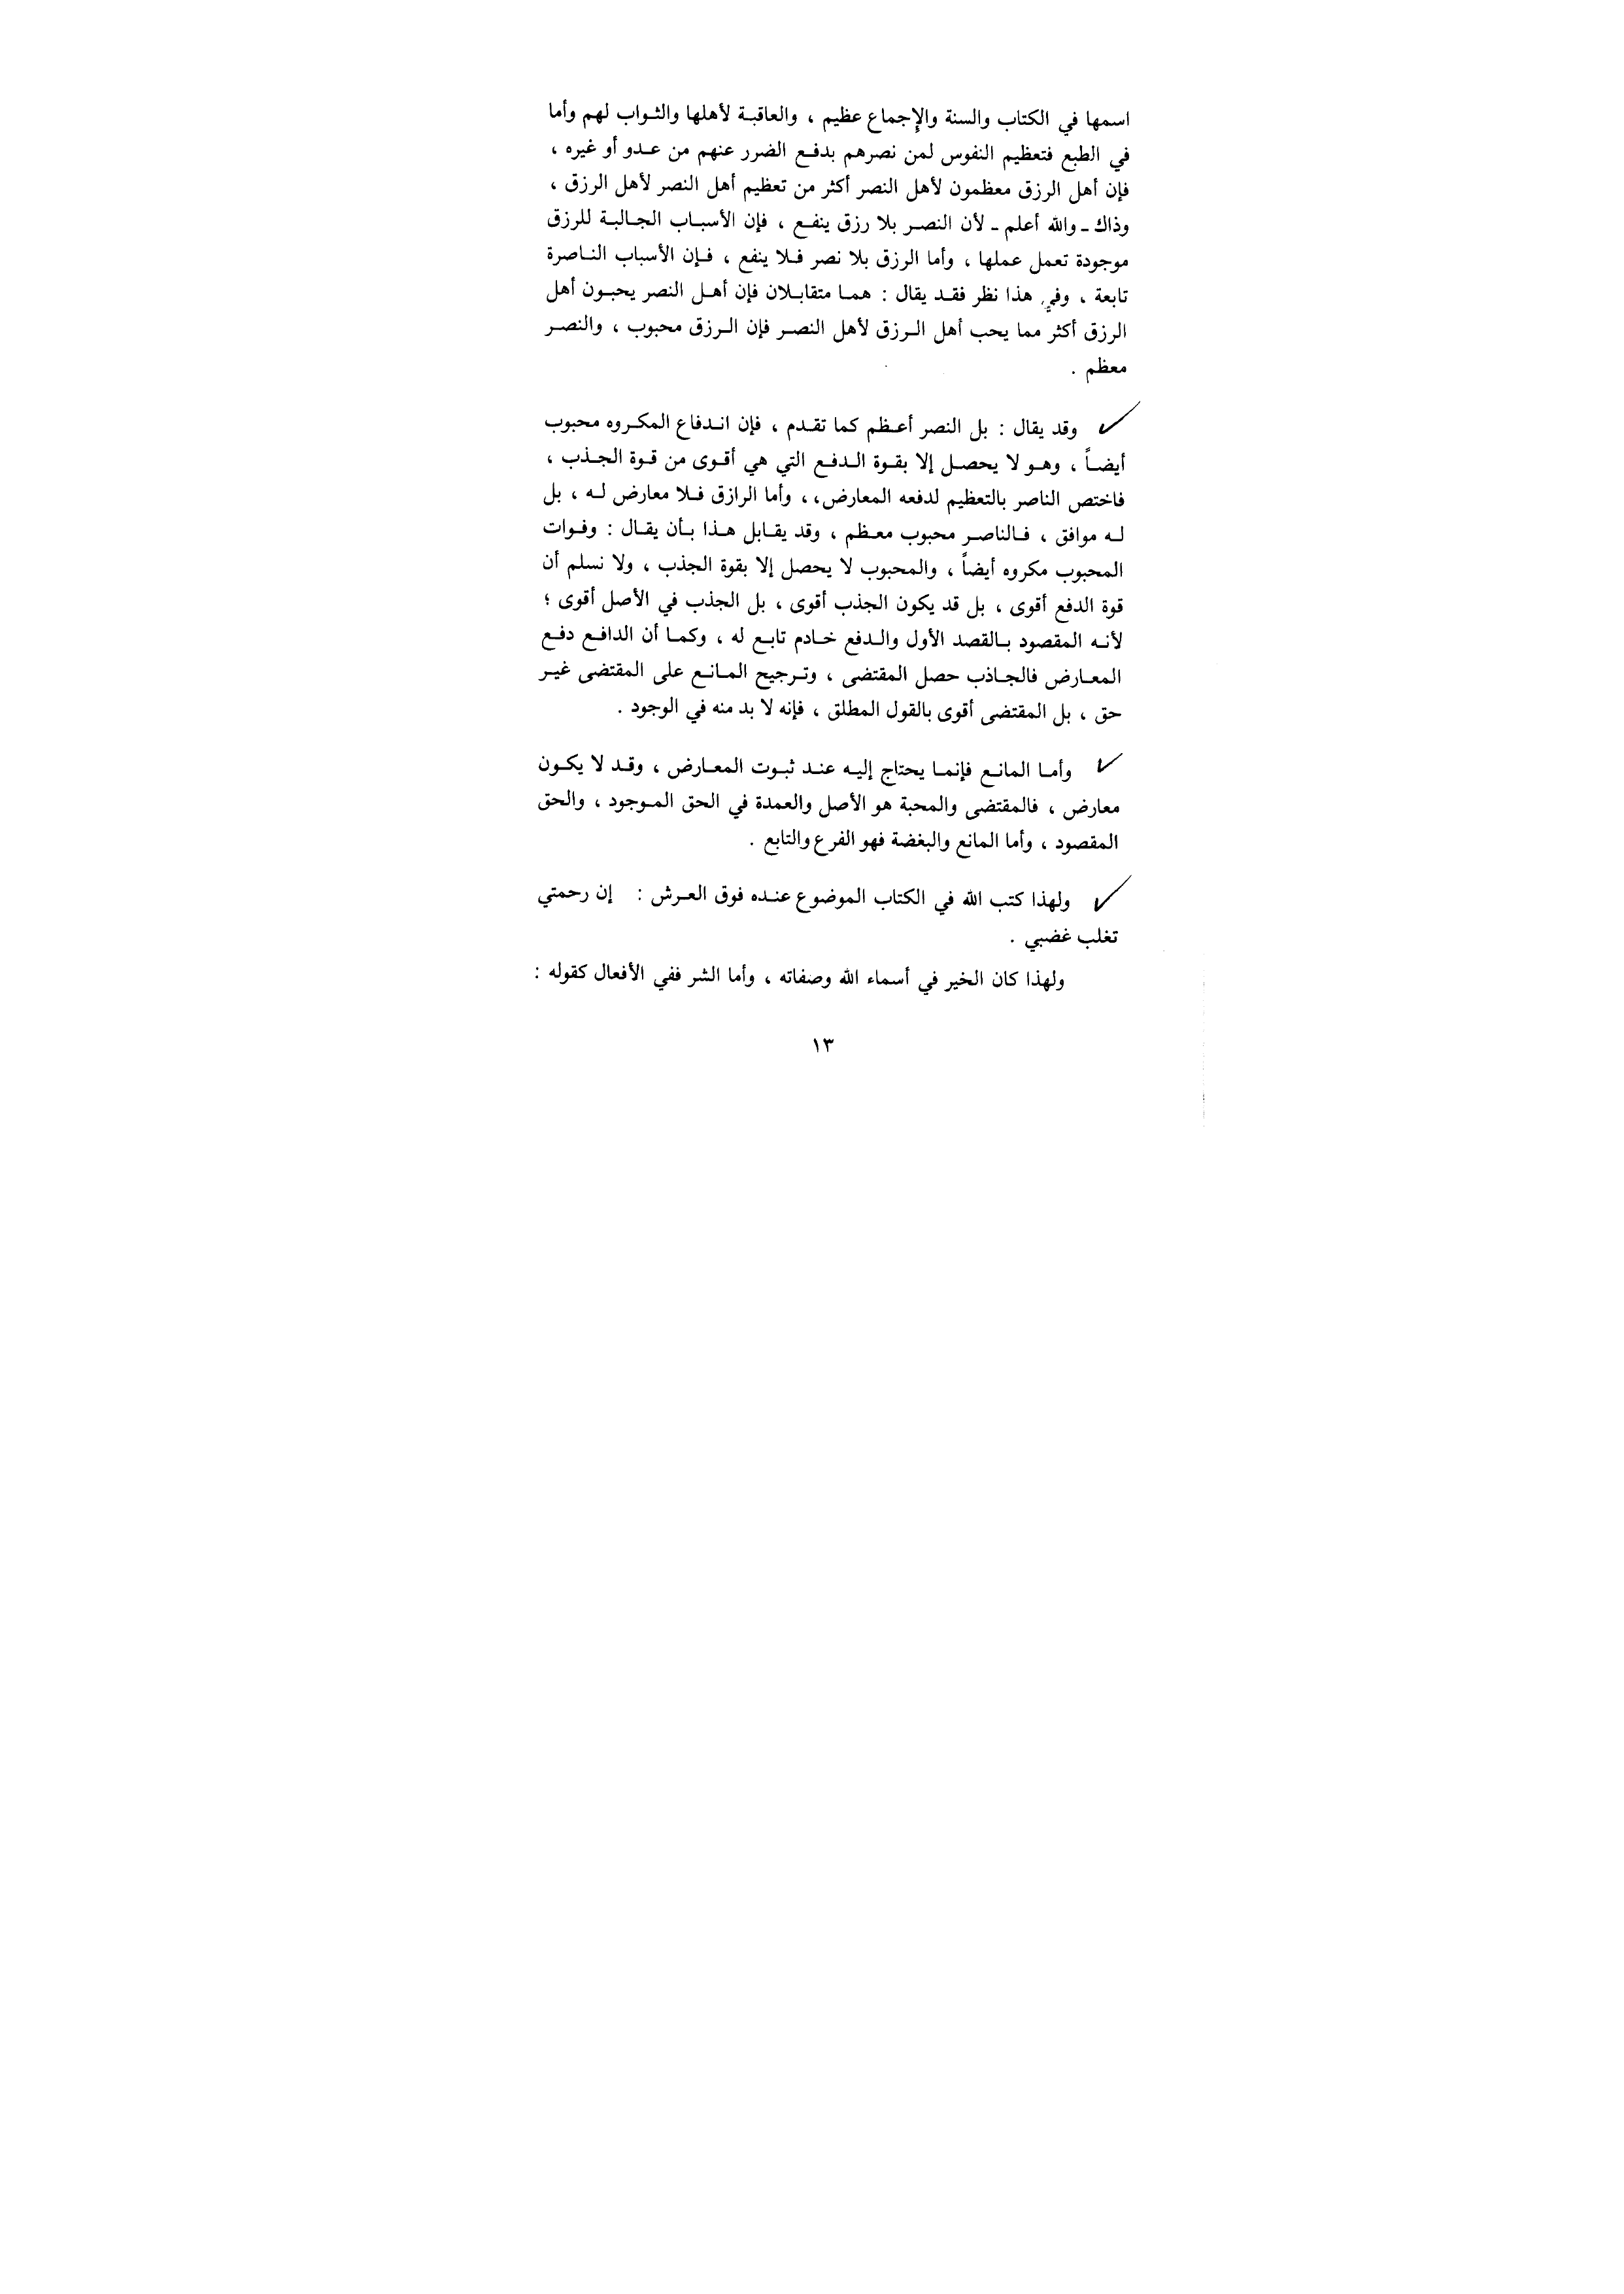 اسمها في الكتاب والسنة والإجماع عظيم ، والعاقبة لأهلها والثواب لهم وأما
في الطبع فتعظيم النفوس لمن نصرهم بدفع الضرر عنهم من عدو أو غيره ،
فإن أهل الرزق معظمون لأهل النصر أكثر من تعظيم أهل النصر لأهل الرزق ،
وذاك ـ والله أعلم ـ لأن النصر بلا رزق ينفع ، فإن الأسباب الجالبة للرزق
موجودة تعمل عملها ، وأما الرزق بلا نصر فلا ينفع ، فإن الأسباب الناصرة
تابعة ، وفي هذا نظر فقد يقال : هما متقابلان فإن أهل النصر يحبون أهل
الرزق أكثر مما يحب أهل الرزق لأهل النصر فإن الرزق محبوب ، والنصر
معظم .
وقد يقال : بل النصر أعظم كما تقدم ، فإن اندفاع المكروه محبوب
أيضاً ، وهو لا يحصل إلا بقوة الدفع التي هي أقوى من قوة الجذب ،
فاختص الناصر بالتعظيم لدفعه المعارض،، وأما الرازق فلا معارض له ، بل
له موافق ، فالناصر محبوب معظم ، وقد يقابل هذا بأن يقال : وفوات
المحبوب مكروه أيضاً ، والمحبوب لا يحصل إلا بقوة الجذب ، ولا نسلم أن
قوة الدفع أقوى ، بل قد يكون الجذب أقوى ، بل الجذب في الأصل أقوى ؛
لأنه المقصود بالقصد الأول والدفع خادم تابع له ، وكما أن الدافع دفع
المعارض فالجاذب حصل المقتضى ، وترجيح المانع على المقتضى غير
حق ، بل المقتضى أقوى بالقول المطلق ، فإنه لا بد منه في الوجود .
وأما المانع فإنما يحتاج إليه عند ثبوت المعارض ، وقد لا يكون
معارض ، فالمقتضى والمحبة هو الأصل والعمدة في الحق الموجود ، والحق
المقصود ، وأما المانع والبغضة فهو الفرع والتابع .
ولهذا كتب الله في الكتاب الموضوع عنده فوق العرش : إن رحمتي
تغلب غضبي .
ولهذا كان الخير في أسماء الله وصفاته ، وأما الشر ففي الأفعال كقوله :
١٣